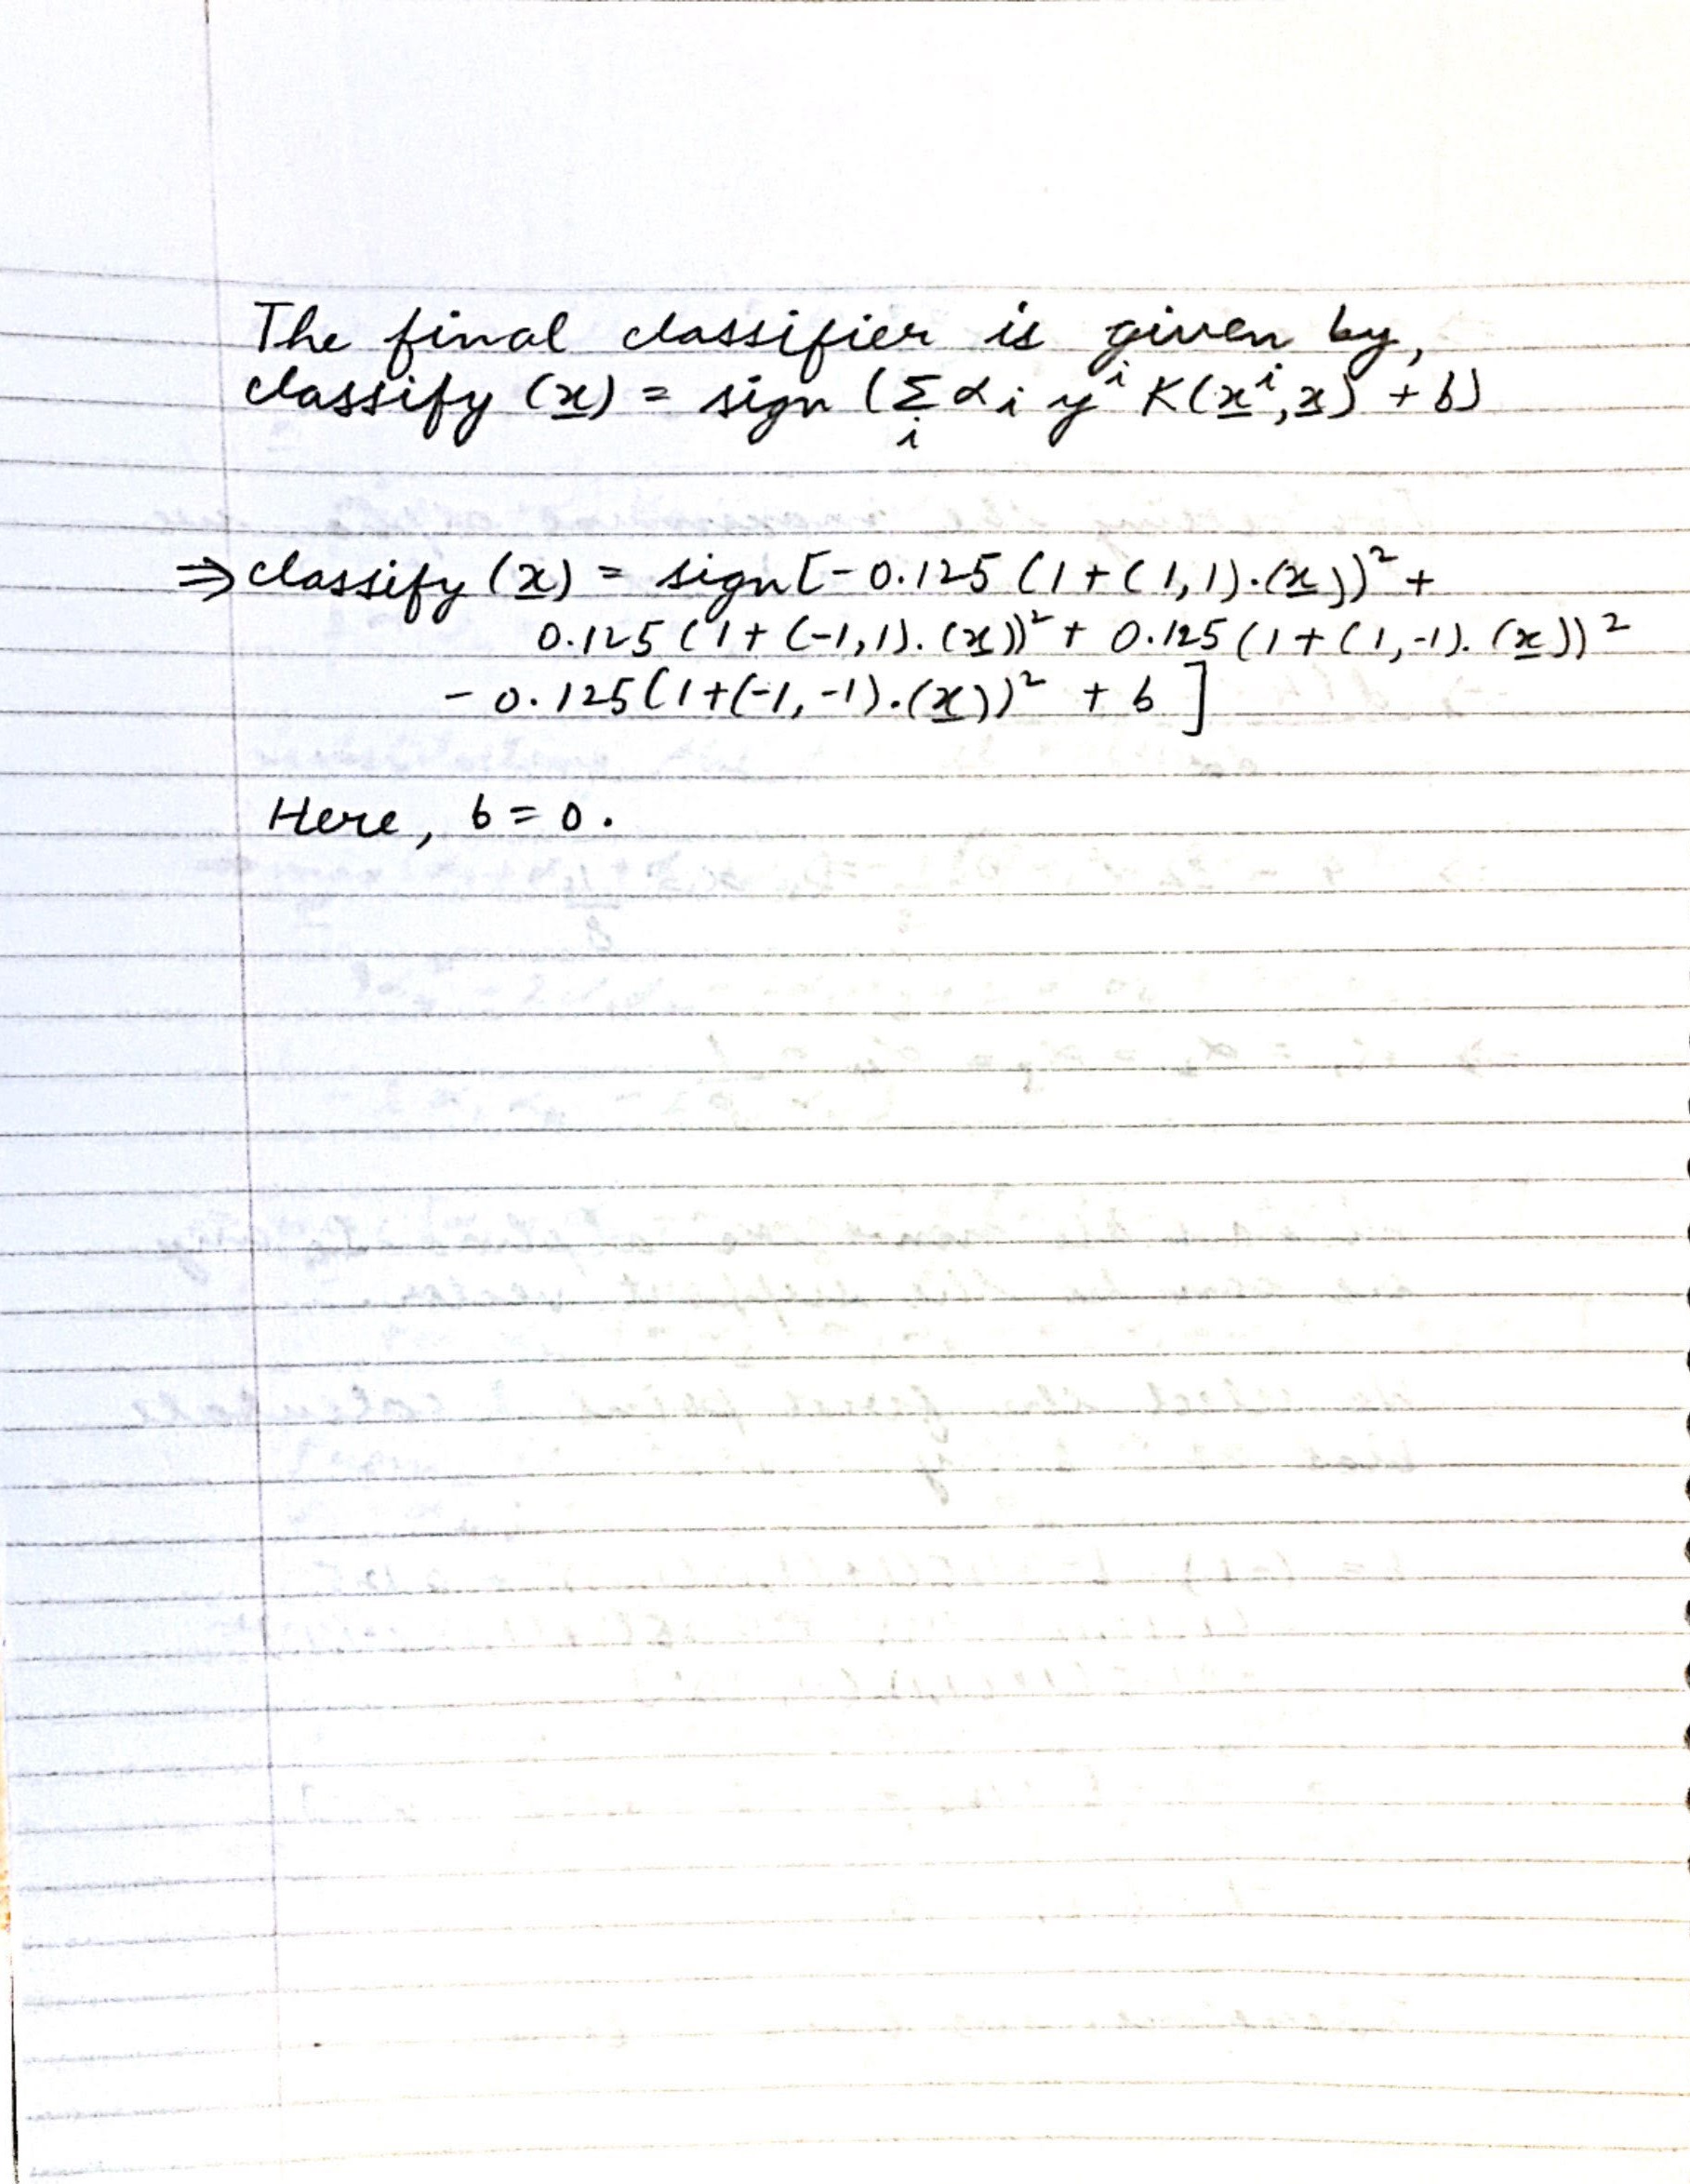 The final classifier is given by,
classify (x) = sign (Σ_i α_i y^i K(x^i, x) + b)
⇒ classify (x) = sign [- 0.125 (1 + (1, 1).(x))² +
0.125 (1 + (-1, 1). (x))² + 0.125 (1 + (1, -1). (x))²
- 0.125 (1 + (-1, -1).(x))² + b ]
Here, b = 0.